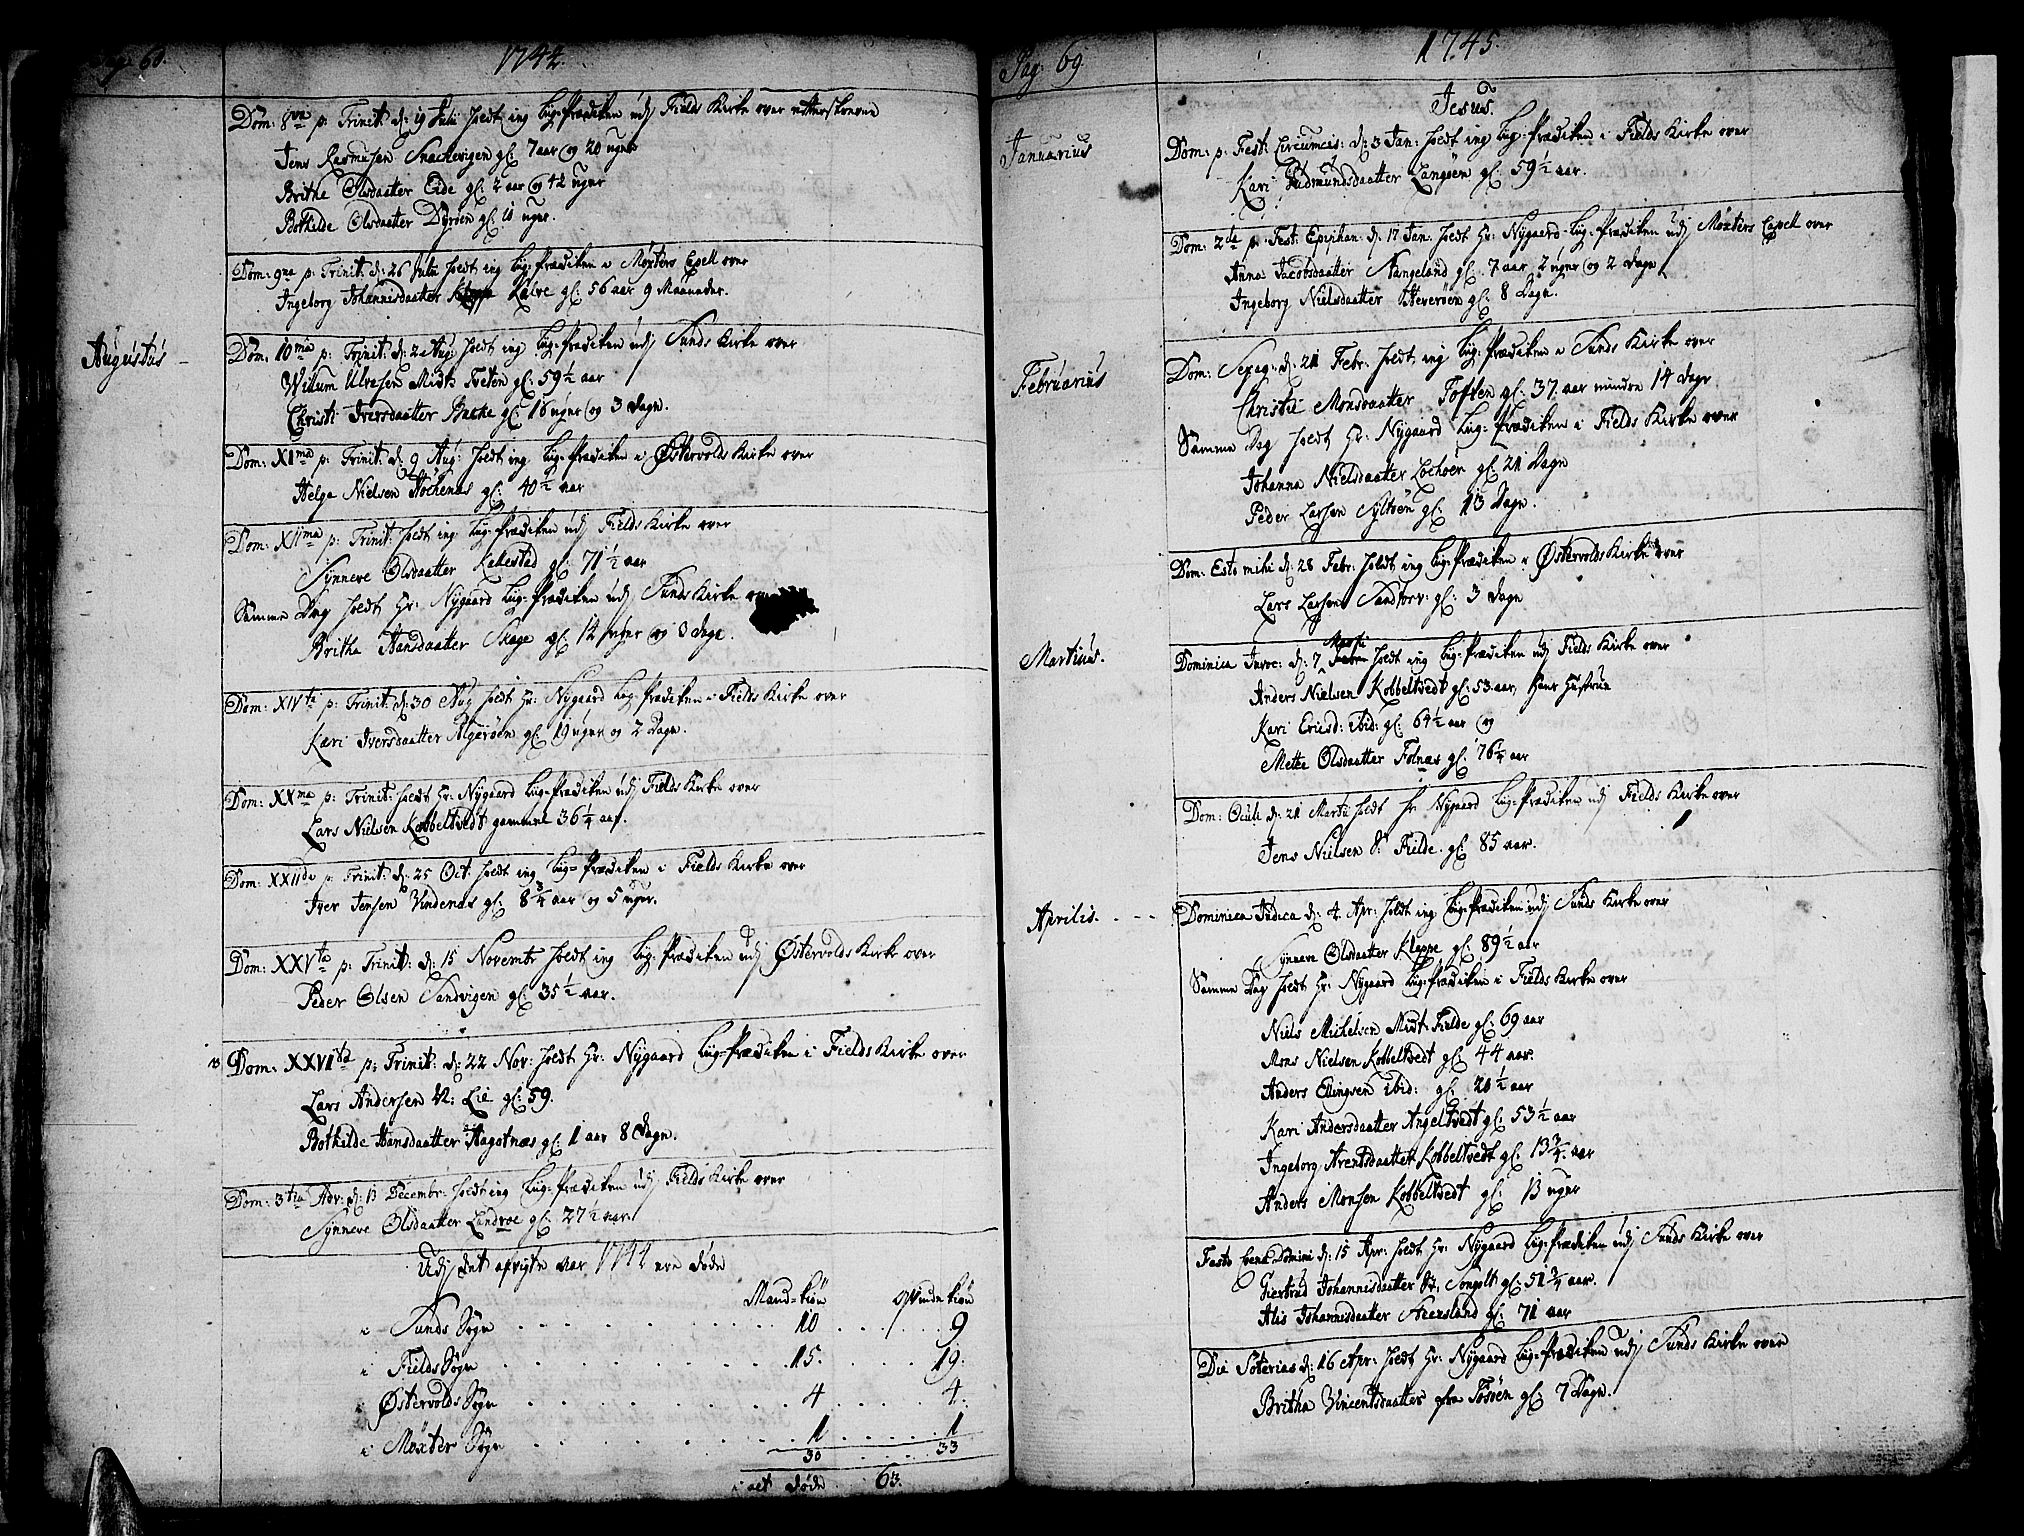 1744.
Dom: 8va p: Trinit: d: 19 Julii holdt ieg Liig-Prædiken udj Fields Kirke over efterskrevne
Jens Rasmusen Snachevigen gl: 7 aar og 20 uger
Brithe Olsdaatter Eide gl: 2 aar og 42 uger
Bothilde Olsdaatter Dyrøen gl: 11 uger.
Dom: 9na p: Trinit: d: 26 Julii holdt ieg Liig-Prædiken i Møxters Capell over
Ingeborg Johannisdaatter Kalve gl: 56 aar 9 Maaneder.
Augustus
Dom: 10ma p: Trinit: d: 2 Aug: holdt ieg Liig-Prædiken udj Sunds Kirke over
Willum Ulvesen Midt Tveten gl: 59½ aar
Christi Iversdaatter Backe gl: 16 uger og 3 dage.
Dom: XIma p: Trinit: d: 9 Aug: holdt ieg Liig-Prædiken i Østervolds Kirke over
Helge Nielsen Høchenæs gl: 40½ aar
Dom: XIIma p: Trinit: holdt ieg Liig-Prædiken udj Fields Kirke over
Synneve Olsdaatter Kallestad gl: 71½ aar
Samme Dag holdt Hr: Nygaard Liig-Prædiken udj Sunds Kirke over
Britha Hansdaatter Skage gl: 12 uger og 3 dage.
Dom: XIVta p: Trinit: d: 30 Aug holdt Hr: Nygaard Liig-Prædiken i Fields Kirke over
Kari Iversdaatter Algerøen gl: 19 uger og 2 Dage.
Dom: XXma p: Trinit: holdt Hr: Nygaard Liig-Prædiken udj Fields Kirke over
Lars Nielsen Kobbeltvedt gammel 36¼ aar.
Dom: XXIIda p: Trinit: d: 25 Oct: holdt ieg Liig-Prædiken i Fields Kirke over
Iver Jensen Vindenæs gl: 8¾ aar og 5 uger.
Dom: XXVta p: Trinit: d: 15 Novembr holdt ieg Liig-Prædiken udj Østervolds Kirke over
Peder Olsen Sandvigen gl: 35½ aar.
Dom: XXVIta p: Trinit: d: 22 Nov: holdt Hr: Nygaard Liig-Prædiken i Fields Kirke over
Lars Andersen N: Lie gl: 59.
Bothilde Hansdaatter Hagotnæs gl: 1 aar 8 Dage.
Dom: 3tia Adv: d: 13 Decembr: holdt ieg Liig-Prædiken udj Fields Kirke over
Synneve Olsdaatter Landroe gl: 27½ aar
Udj det afvigte aar 1744 ere døde
Mand-kiøn Qvinde kiøn
i Sunds Sogn 10 9
i Fields Sogn 15. 19.
i Østervolds Sogn 4 4.
i Møxter Sogn 1 1
30 33
i alt døde 63.
Pag: 69
1745.
Jesus.
Januarius
Dom: p: Fest: Circumcis: d: 3 Jan: holdt ieg Liig-Prædiken i Fields Kirke over
Kari Gudmundsdaatter Langøen gl: 59½ aar.
Dom: 2da p: Fest: Epiphan: d: 17 Jan: holdt Hr: Nygaard Liig-Prædiken udj Møxters Capell over
Anna Jacobsdaatter Stangeland gl: 7 aar 2 uger og 2 Dage
Ingeborg Nielsdaatter Heverøen gl: 8 Dage.
Februarius
Dom: Sexag: d: 21 Febr: holdt ieg Liig-Prædiken i Sunds Kirke over
Christie Monsdaatter Toften gl: 37 aar mindre 14 dage
Samme Dag holdt Hr: Nygaard Liig-Prædiken i Fields Kirke over
Johanna Nielsdaatter Lochøen gl: 21 Dage
Peder Larsen Syltøen gl: 13 Dage.
Dom: Esto mihi d: 28 Febr: holdt ieg Liig-Prædiken i Østervolds Kirke over
Lars Larsen Sandtorv: gl: 3 Dage
Martius.
Dominica Invoc: d: 7 Martii holdt ieg Liig-Prædiken udj Fields Kirke over
Anders Nielsen Kobbeltvedt gl: 53 aar, hans Hustrue
Kari Ericsd: ibid: gl: 64½ aar og
Mette Olsdaatter Folnæs gl: 76¼ aar
Dom: Oculi d: 21 Martii holdt Hr Nygaard Liig-Prædiken udj Fields Kirke over
Jens Nielsen Ø: Fielde gl: 85 aar.
Aprilis.
Dominica Judica d: 4. Apr: holdt ieg Liig-Prædiken udj Sunds Kirke over
Synneve Olsdaatter Kleppe gl: 89½ aar
Samme Dag holdt Hr: Nygaard Liig-Prædiken i Fields Kirke over
Niels Michelsen Midt-Fielde gl: 69 aar
Mons Nielsen Kobbeltvedt gl: 44 aar.
Anders Ellingsen ibid: gl: 20½ aar
Kari Andersdaatter Angeltvedt gl: 53½ aar
Ingeborg Arentsdaatter Kobbeltvedt gl: 13¾ aar
Anders Monsen Kobbeltvedt gl: 13 uger
Festo Cœnæ Domini d: 15 Apr: holdt Hr: Nygaard Liig-Prædiken udj Sunds Kirke over
Giertrud Johannisdaatter St: Songolt gl: 51¾ aar.
Alis Johannisdaatter Neersland gl: 71 aar
Die Soterias d: 16 Apr: holdt Hr: Nygaard Liig-Prædiken udj Sunds Kirke over
Britha Vincentsdaatter fra Tøsøen gl: 7 Dage.